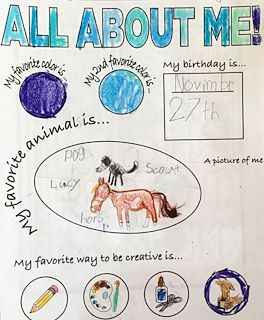 ALL ABOUT ME!
My favorite color is...
My 2nd favorite color is...
My birthday is...
Novimbr
27th
My favorite animal is...
A picture of me
Dog
Scout
Lucy
hors
My favorite way to be creative is...